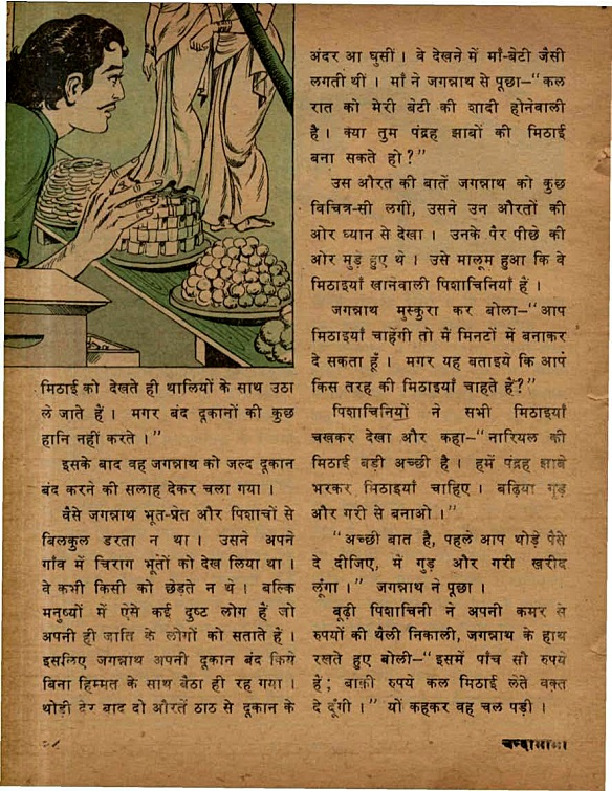 मिठाई को देखते ही थालियों के साथ उठा
ले जाते हैं । मगर बंद दूकानों की कुछ
हानि नहीं करते ।”
इसके बाद वह जगन्नाथ को जल्द दूकान
बंद करने की सलाह देकर चला गया ।
वैसे जगन्नाथ भूत-प्रेत और पिशाचों से
बिलकुल डरता न था । उसने अपने
गाँव में चिराग भूतों को देख लिया था ।
वे कभी किसी को छेड़ते न थे । बल्कि
मनुष्यों में ऐसे कई दुष्ट लोग हैं जो
अपनी ही जाति के लोगों को सताते हैं ।
इसलिए जगन्नाथ अपनी दूकान बंद किये
बिना हिम्मत के साथ बैठा ही रह गया ।
थोड़ी देर बाद दो औरतें ठाठ से दूकान के
अंदर आ घुसीं । वे देखने में माँ-बेटी जैसी
लगती थीं । माँ ने जगन्नाथ से पूछा-“कल
रात को मेरी बेटी की शादी होनेवाली
है । क्या तुम पंद्रह झाबों की मिठाई
बना सकते हो ?”
उस औरत की बातें जगन्नाथ को कुछ
विचित्र-सी लगीं, उसने उन औरतों की
ओर ध्यान से देखा । उनके पैर पीछे की
ओर मुड़े हुए थे । उसे मालूम हुआ कि वे
मिठाइयाँ खानेवाली पिशाचिनियाँ हैं ।
जगन्नाथ मुस्कुरा कर बोला-“आप
मिठाइयाँ चाहेंगी तो मैं मिनटों में बनाकर
दे सकता हूँ । मगर यह बताइये कि आप
किस तरह की मिठाइयाँ चाहते हैं?”
पिशाचिनियों ने सभी मिठाइयाँ
चखकर देखा और कहा-“नारियल की
मिठाई बड़ी अच्छी है । हमें पंद्रह झाबे
भरकर मिठाइयाँ चाहिए । बढ़िया गुड़
और गरी से बनाओ ।”
“अच्छी बात है, पहले आप थोड़े पैसे
दे दीजिए, मैं गुड़ और गरी खरीद
लूंगा ।” जगन्नाथ ने पूछा ।
बूढ़ी पिशाचिनी ने अपनी कमर से
रुपयों की थैली निकाली, जगन्नाथ के हाथ
रखते हुए बोली-“इसमें पाँच सौ रुपये
हैं; बाक़ी रुपये कल मिठाई लेते वक्त
दे दूंगी ।” यों कहकर वह चल पड़ी ।
चन्दामामा